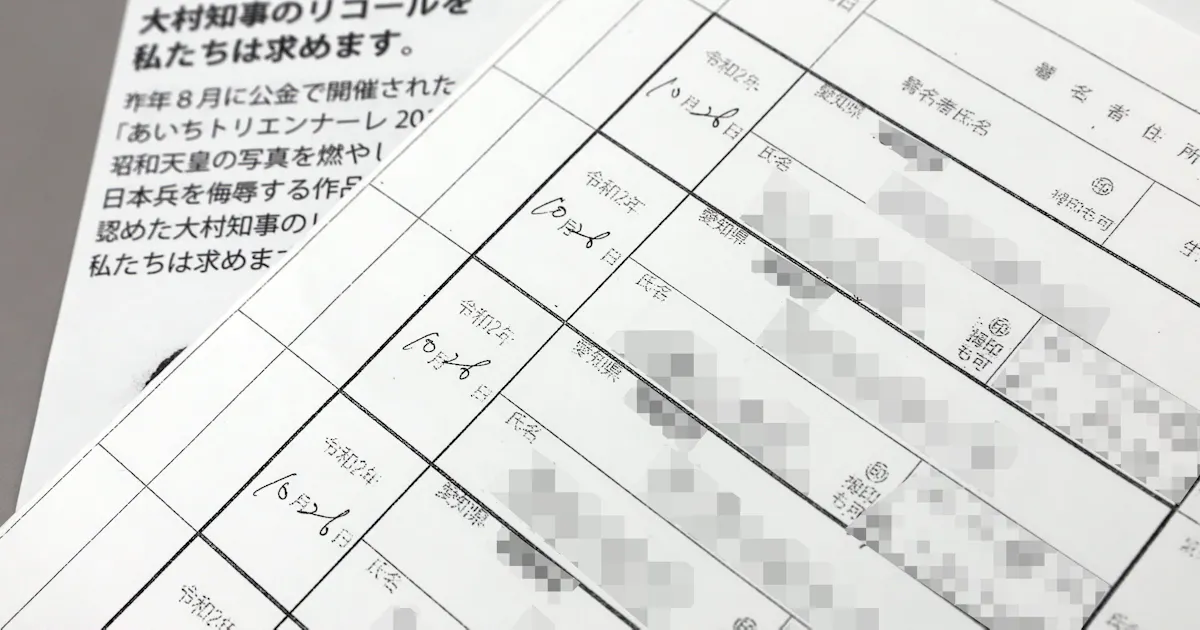 大村知事のリコールを
私たちは求めます。
昨年8月に公金で開催された
「あいちトリエンナーレ 20
昭和天皇の写真を燃やし
日本兵を侮辱する作品
認めた大村知事のリ
私たちは求めます
日
署名者住所
署名者氏名
㊞
拇印も可
生
令和2年
10月26日
愛知県
氏名
㊞
拇印
も可
令和2年
10月26日
愛知県
氏名
㊞
拇印
も可
令和2年
10月26日
愛知県
氏名
㊞
令和2年
10月26日
愛知県
氏名
令和2年